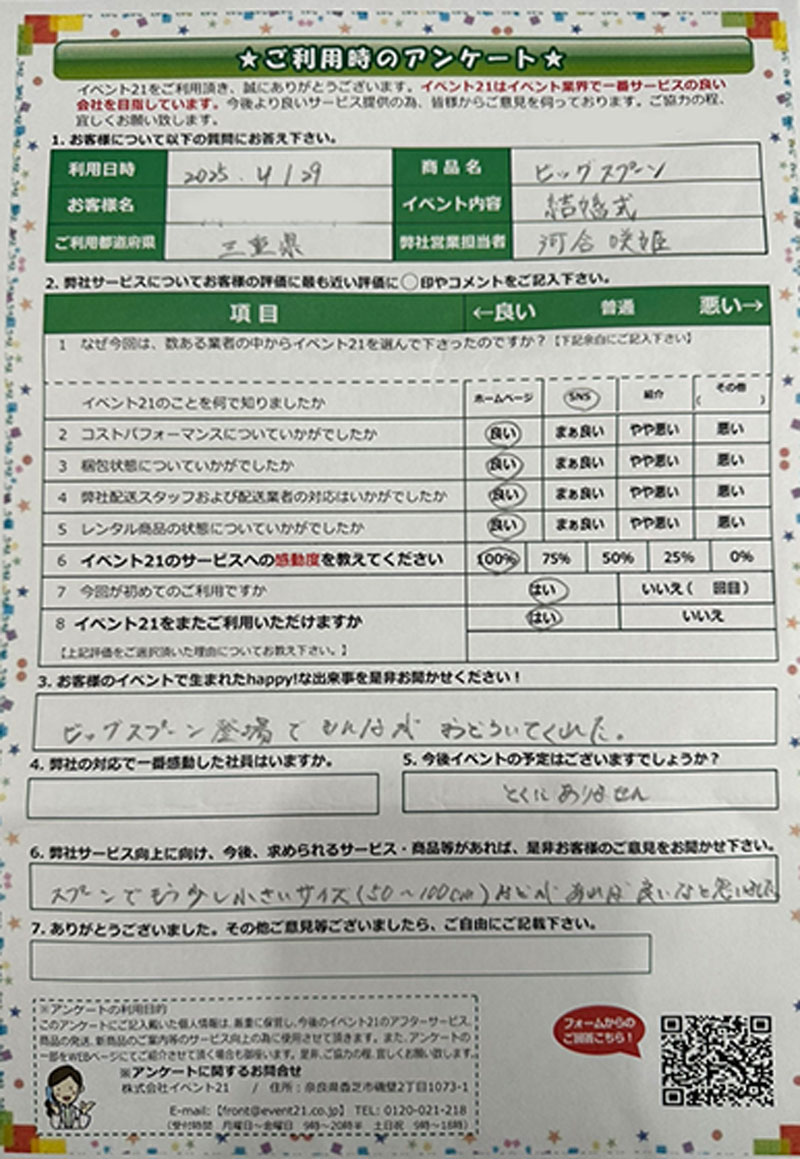 ★ご利用時のアンケート★
イベント21をご利用頂き、誠にありがとうございます。イベント21はイベント業界で一番サービスの良い
会社を目指しています。今後より良いサービス提供の為、皆様からご意見を伺っております。ご協力の程、
宜しくお願い致します。
1. お客様について以下の質問にお答え下さい。
利用日時 2025. 4/29 商品名 ビッグスプーン
お客様名 イベント内容 結婚式
ご利用都道府県 三重県 弊社営業担当者 河合 咲姫
2. 弊社サービスについてお客様の評価に最も近い評価に○印やコメントをご記入下さい。
項目 ←良い 普通 悪い→
1 なぜ今回は、数ある業者の中からイベント21を選んで下さったのですか?【下記余白にご記入下さい】
イベント21のことを何で知りましたか ホームページ SNS 紹介 その他( )
2 コストパフォーマンスについていかがでしたか 良い まぁ良い やや悪い 悪い
3 梱包状態についていかがでしたか 良い まぁ良い やや悪い 悪い
4 弊社配送スタッフおよび配送業者の対応はいかがでしたか 良い まぁ良い やや悪い 悪い
5 レンタル商品の状態についていかがでしたか 良い まぁ良い やや悪い 悪い
6 イベント21のサービスへの感動度を教えてください 100% 75% 50% 25% 0%
7 今回が初めてのご利用ですか はい いいえ( 回目)
8 イベント21をまたご利用いただけますか はい いいえ
【上記評価をご選択頂いた理由についてお教え下さい。】
3. お客様のイベントで生まれたhappy!な出来事を是非お聞かせください!
ビッグスプーン登場でみんながおどろいてくれた。
4. 弊社の対応で一番感動した社員はいますか。
5. 今後イベントの予定はございますでしょうか?
とくにありません
6. 弊社サービス向上に向け、今後、求められるサービス・商品等があれば、是非お客様のご意見をお聞かせ下さい。
スプーンでもう少し小さいサイズ(50~100cm)などがあれば良いなと思いました
7. ありがとうございました。その他ご意見等ございましたら、ご自由にご記載下さい。
※アンケートの利用目的
このアンケートにご記入戴いた個人情報は、厳重に保管し、今後のイベント21のアフターサービス、
商品の発送、新商品のご案内等のサービス向上の為に使用させて頂きます。また、アンケートの
一部をWEBページにてご紹介させて頂く場合も御座います。是非、ご協力の程、宜しくお願い致します。
※アンケートに関するお問合せ
株式会社イベント21 / 住所:奈良県香芝市磯壁2丁目1073-1
E-mail:【front@event21.co.jp】 TEL: 0120-021-218
(受付時間 月曜日~金曜日 9時~20時半 土日祝 9時~18時)
フォームからの
ご回答こちら!